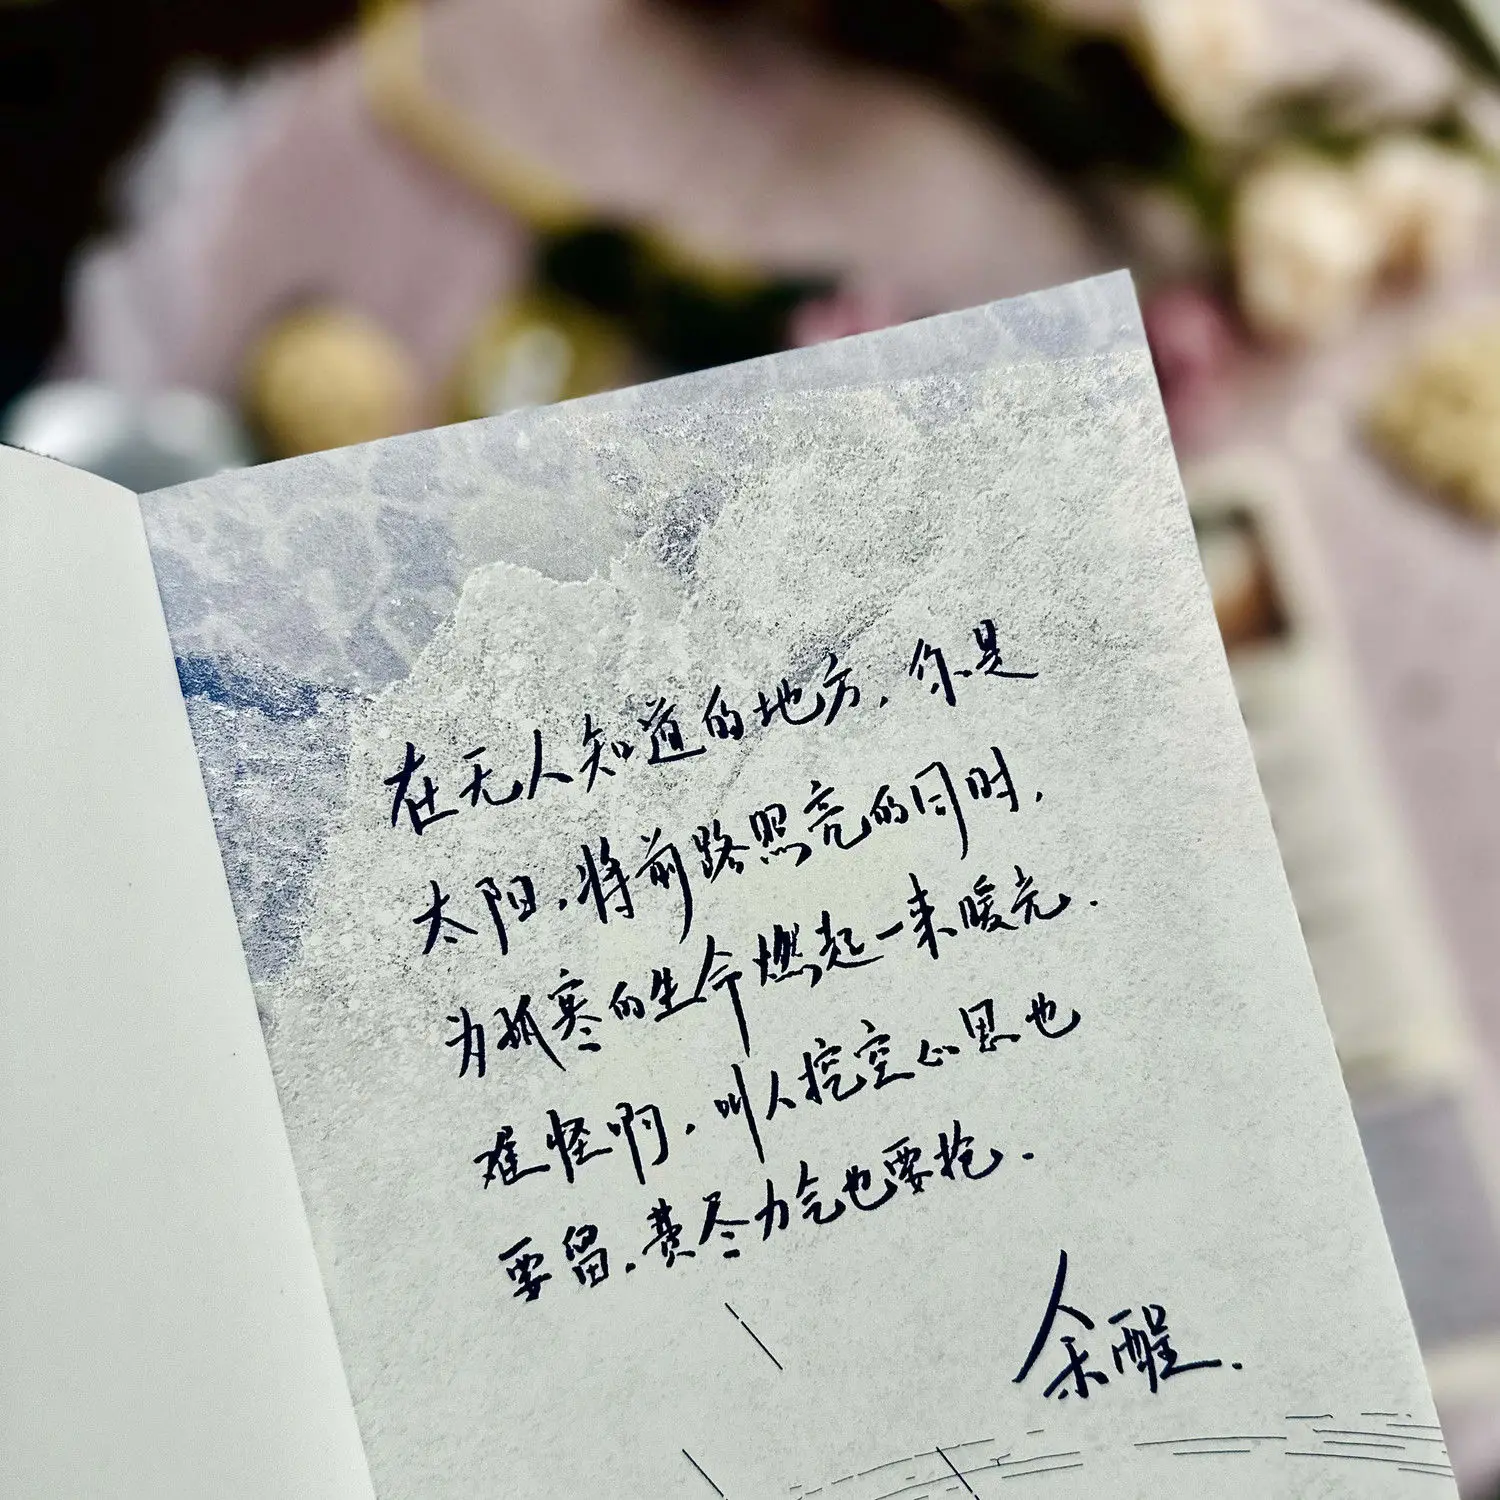 在无人知道的地方，你是
太阳，将前路照亮的同时，
为孤寒的生命燃起一束暖光.
难怪啊，叫人挖空心思也
要留，费尽力气也要抢.
余酲.